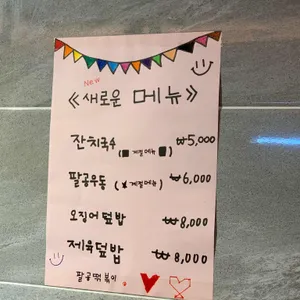 New
《새로운 메뉴》
잔치국수 ₩5,000
(계절메뉴)
팔공우동 (계절메뉴) ₩6,000
오징어덮밥 ₩8,000
제육덮밥 ₩8,000
팔공떡볶이.